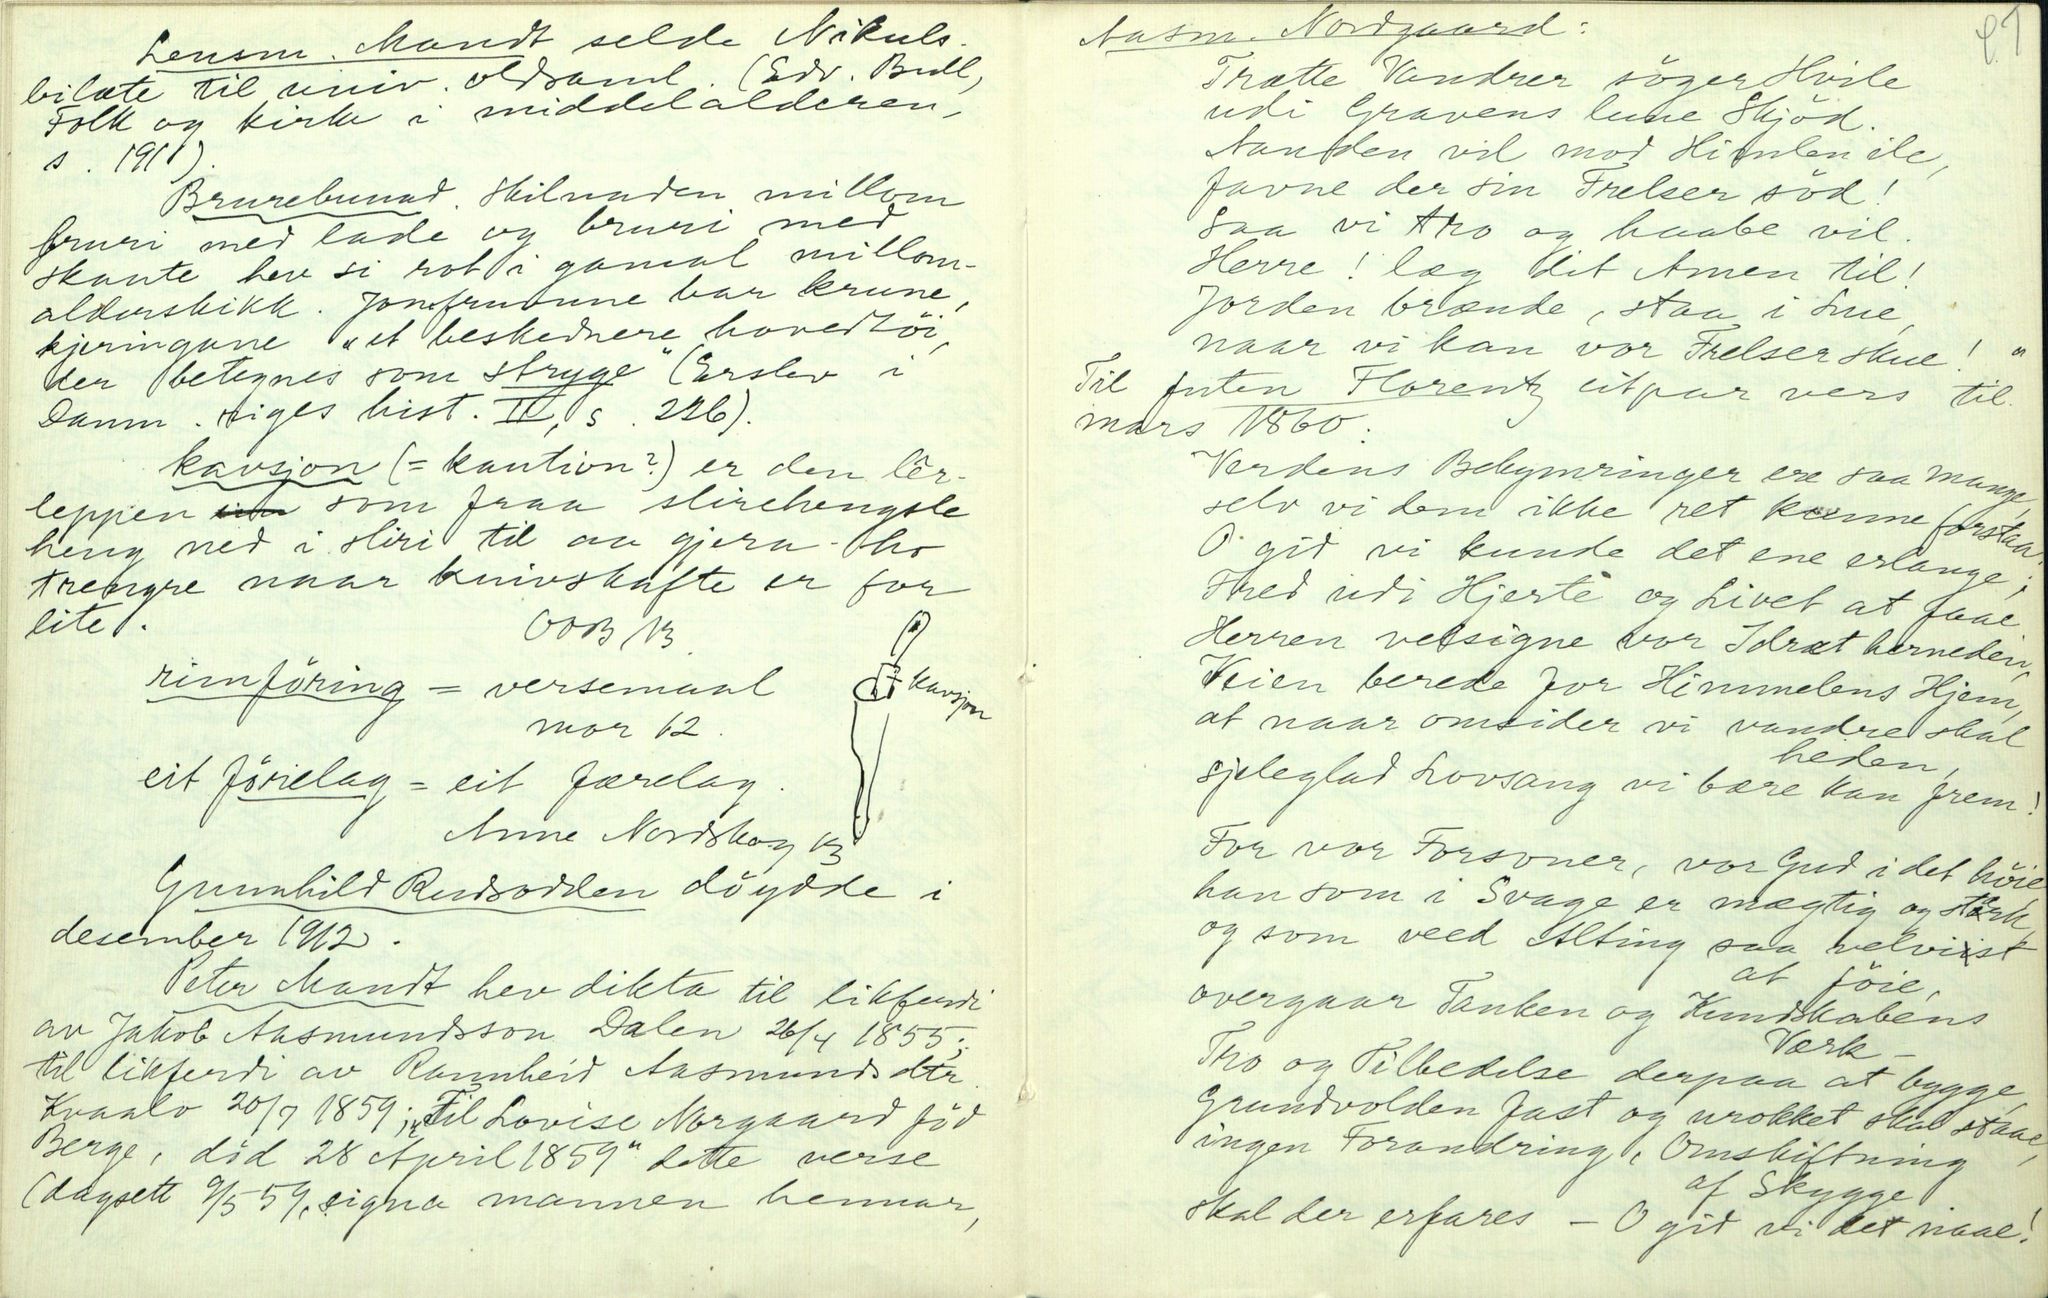 Lensm. Mandt selde Nikuls-
bilæte til univ. oldsaml. (Edv. Bull,
Folk og kirke i middelalderen,
s. 191).
Brurebunad. Skilnaden millom
bruri med lade og bruri med
skaute hev si rot i gamal millom-
alderskikk. Jomfruune bar krune,
kjeringane "et beskednere hovedtöi,
der betegnes som stryge" (Erslev i
Danm. riges hist. II, s. 226).
kavsjon (= kaution?) er den lêr-
leppen som fraa slirehengsle
heng ned i sliri til aa gjera ho
trengre naar knivskafte er for
lite.
OOB 13
kavsjon
rimföring = versemaal
mor 12.
eit förielag = eit færelag.
Anne Nordskog 13
Gunnhild Rudsodden döydde i
desember 1912.
Peter Mandt hev dikta til likferdi
av Jakob Aasmundsson Dalen 26/4 1855;
til likferdi av Rannheid Aasmundsdtr.
Kvaalo 20/7 1859; "Til Lovise Norgaard föd
Berge, död 28 April 1859" dette verse
(dagsett 9/5 59, signa mannen hennar,
Aasm. Nordgaard:
Trætte Vandrer söger Hvile
udi Gravens lune Skjöd.
Aanden vil mod Himlen ile,
favne der sin Frelser söd!
Saa vi tro og haabe vil.
Herre! læg dit Amen til!
Jorden brænde, staa i Lue,
naar vi kan vor Frelser skue!"
Til futen Florentz eitpar vers til
mars 1860:
Verdens Bekymringer ere saa mange,
selv vi dem ikke ret kunne forstaa.
O gid vi kunde det ene erlange;
Fred udi Hjerte og Livet at faae
Herren velsigne vor Idræt herneden,
Veien berede for Himmelens Hjem,
at naar omsider vi vandre skal
heden,
sjæleglad Lovsang vi bære kan frem!
For vor Forsoner, vor Gud i det höie
han som i Svage er mægtig og stærk,
og som veed Alting saa velviist
at föie,
overgaar Tanken og Kundskabens
Værk –
Tro og Tilbedelse derpaa at bygge,
Grundvolden fast og urokket skal staae,
ingen Forandring, Omskiftning
af Skygge
skal der erfares – O gid vi det naae!